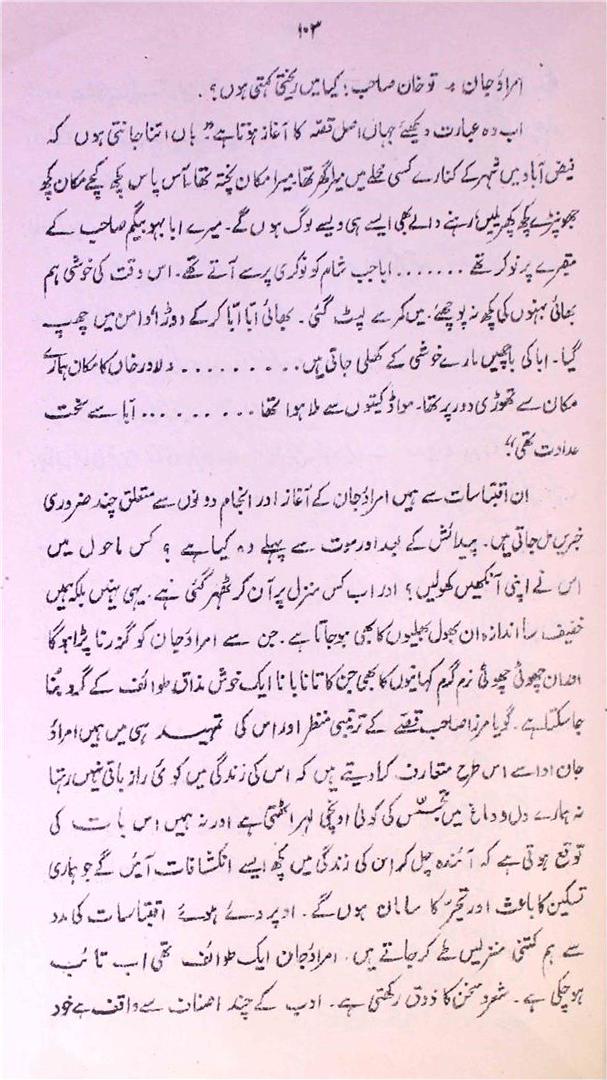 ۱۰۳
امراؤجان ۔ تو خان صاحب ؛ کیا میں ریختی کہتی ہوں ؟ .
اب وہ عبارت دیکھئے جہاں اصل قصّہ کا آغاز ہوتا ہے" ہاں اتنا جانتی ہوں کہ
فیض آباد میں شہر کے کنارے کسی محلے میں میرا گھر تھا۔ میرا مکان پختہ تھا۔ آس پاس کچھ کچے مکان کچھ
جھونپڑے کچھ کھپریلیں رہنے والے بھی ایسے ہی ویسے لوگ ہوں گے۔ میرے ابا بہو بیگم صاحب کے
مقبرے پر نوکر تھے ....... ابا جب شام کو نوکری پر سے آتے تھے۔ اس وقت کی خوشی ہم
بھائی بہنوں کی کچھ نہ پوچھئے ۔ میں کمر سے لپٹ گئی ۔ بھائی ابّا ابّا کرکے دوڑا دامن میں چھپ
گیا۔ ابا کی باچھیں مارے خوشی کے کھلی جاتی ہیں ......... دلاور خاں کا مکان ہمارے
مکان سے تھوڑی دور پر تھا۔ موا ڈکیتوں سے ملا ہوا تھا ......... ابا سے سخت
عداوت تھی"
ان اقتباسات سے ہمیں امراؤجان کے آغاز اور انجام دونوں سے متعلق چند ضروری
خبریں مل جاتی ہیں۔ پیدائش کے بعد اور موت سے پہلے وہ کیا ہے ؟ کس ماحول میں
اس نے اپنی آنکھیں کھولیں ؟ اور اب کس منزل پر آن کر ٹھہر گئی ہے۔ یہی نہیں بلکہ ہمیں
خفیف سا اندازہ ان بھول بھلیوں کا بھی ہوجاتا ہے۔ جن سے امراؤجان کو گزرنا پڑا ہوگا
اور ان چھوٹی چھوٹی نرم گرم کہانیوں کا بھی جن کا تانا بانا ایک خوش مذاق طوائف کے گرد بُنا
جا سکتا ہے۔ گویا مرزا صاحب قصّے کے ترتیبی منظر اور اس کی تمہید ہی میں ہمیں امراؤ
جان ادا سے اس طرح متعارف کرا دیتے ہیں کہ اس کی زندگی میں کوئی راز باقی نہیں رہتا
نہ ہمارے دل و دماغ میں تجسّس کی کوئی اونچی لہر اٹھتی ہے اور نہ ہمیں اس بات کی
توقع ہوتی ہے کہ آئندہ چل کر ان کی زندگی میں کچھ ایسے انکشافات آئیں گے جو ہماری
تسکین کا باعث اور تحیّر کا سامان ہوں گے۔ اوپر دئے ہوئے اقتباسات کی مدد
سے ہم کتنی منزلیں طے کر جاتے ہیں۔ امراؤجان ایک طوائف تھی اب تائب
ہوچکی ہے۔ شعر و سخن کا ذوق رکھتی ہے۔ ادب کے چند اصناف سے واقف ہے خود